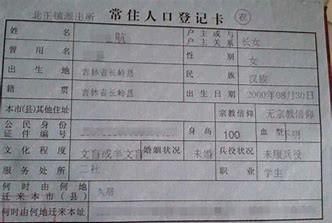 北正镇派出所 常住人口登记卡
姓名 航 户主或与户主关系 长女
曾用名 性别 女
出生地 吉林省长岭县 民族 汉族
籍贯 吉林省长岭县 2000年08月30日
本市（县）其他住址 宗教信仰 无宗教信仰
公民身份证件编号 身高 100 血型 不明
文化程度 文盲或半文盲 婚姻状况 未婚 兵役状况 未服兵役
服务处所 二社 职业 学生
何时由何地迁来本市（县） 久居
何时由何地迁来本址